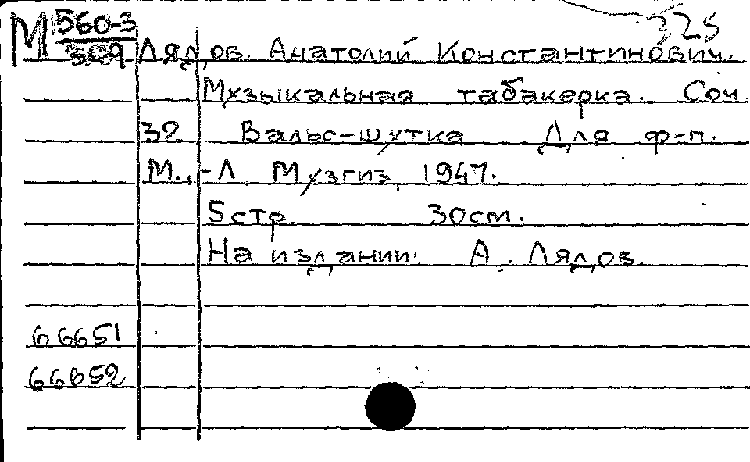 М 560-3 325
369 Лядов. Анатолий Константинович.
Музыкальная табакерка. Соч.
32 Вальс-шутка Для ф-п.
М.,-Л. Музгиз, 1947.
5стр. 30см.
На издании: А. Лядов.
66651
66652